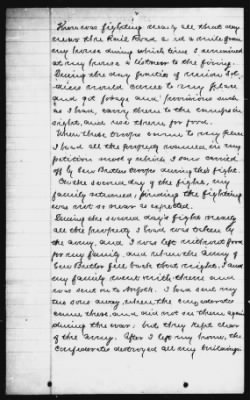 There was fighting nearly all that day
near the Rail Road a 1/2 a mile from
my house during which time I remained
at my house & listened to the firing.
During the day parties of union sol-
diers would come to my place
and get forage and provisions such
as I had, carry them to the camps in
sight, and use them for food.
When these troops came to my place
I had all the property named in my
petition most of which I saw carried
off by Gen Butler troops during this fight.
On the second day of the fight, my
family returned, finding the fighting
was not so near as expected.
During the second day's fight nearly
all the property I had was taken by
the army, and I was left without food
for my family, and when the Army of
Gen Butler fell back that night, I and
my family went with them and
was sent on to Norfolk. I had sent my
two sons away, when the confederates
came there, and did not see them again
during the war, but they kept clear
of the Army. After I left my home, the
Confederates destroyed all my buildings